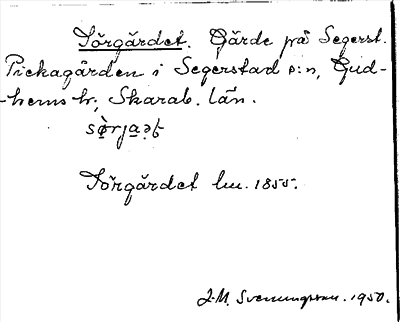 Sörgärdet. Gärde på Segerst.
Prickagården i Segerstad s:n, Gud-
-hems hr, Skarab. län.
Sörgärdet lm. 1855.
J.M. Svenungsson. 1950.